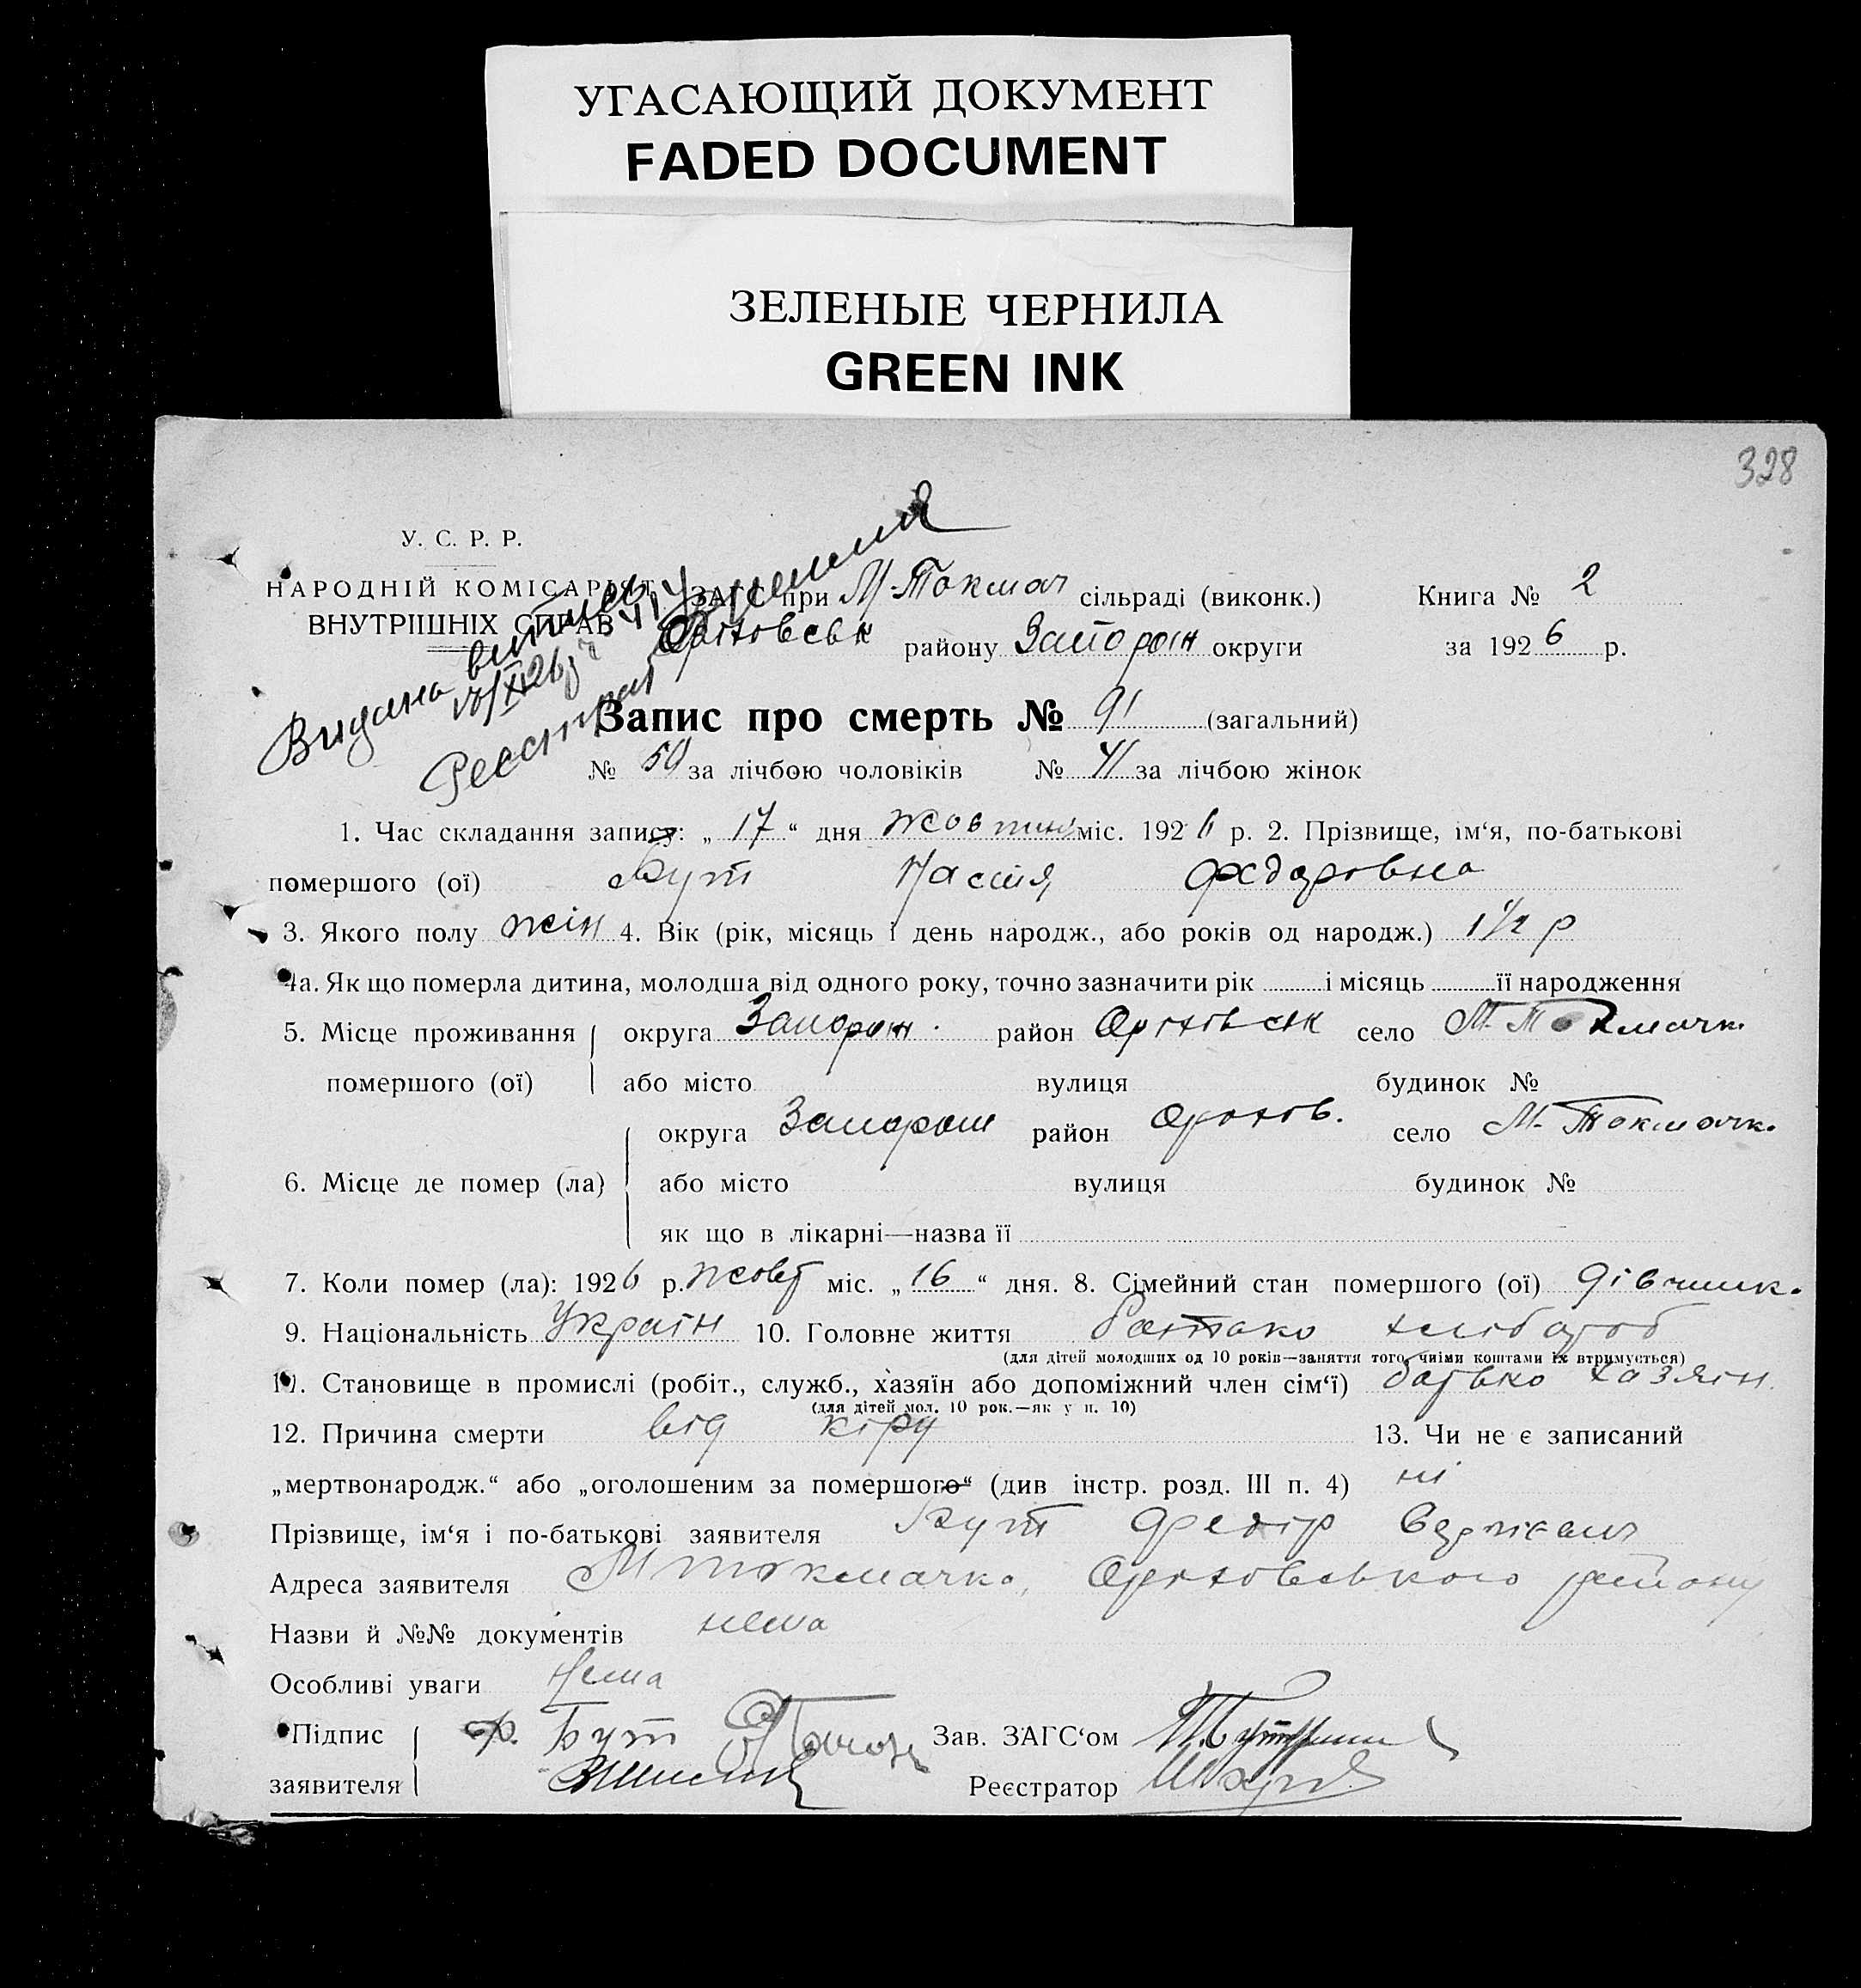 УГАСАЮЩИЙ ДОКУМЕНТ
FADED DOCUMENT
ЗЕЛЕНЫЕ ЧЕРНИЛА
GREEN INK
328
У. С. Р. Р.
НАРОДНІЙ КОМІСАРІЯТ
ВНУТРІШНІХ СПРАВ
Видана витись
Реєстрат
ЗАГС при М-Токмач сільраді (виконк.) Книга № 2
Оріховськ району Запоріж округи за 1926 р.
Запис про смерть № 91 (загальний)
№ 50 за лічбою чоловіків № 41 за лічбою жінок
1. Час складання запису: „ 17 “ дня жовтня міс. 1926 р. 2. Прізвище, ім‘я, по-батькові
помершого (ої) Бут Настя Федоровна
3. Якого полу жін 4. Вік (рік, місяць і день народж., або років од народж.) 1 1/2 р
4а. Як що померла дитина, молодша від одного року, точно зазначити рік і місяць її народження
5. Місце проживання округа Запорож район Оріховськ село М-Токмачк.
помершого (ої) або місто вулиця будинок №
округа Запорож район Оріхов. село М-Токмачк.
6. Місце де помер (ла) або місто вулиця будинок №
як що в лікарні—назва її
7. Коли помер (ла): 1926 р. жовт міс. „ 16 “ дня. 8. Сімейний стан помершого (ої) дівчинк.
9. Національність Україн 10. Головне життя батько хлібороб
(для дітей молодших од 10 років—заняття того, чиїми коштами їх втримується)
11. Становище в промислі (робіт., служб., хазяїн або допоміжний член сім‘ї) батько хазяїн.
(для дітей мол. 10 рок.—як у п. 10)
12. Причина смерти від кіру 13. Чи не є записаний
„мертвонародж.“ або „оголошеним за помершого“ (див інстр. розд. III п. 4) ні
Прізвище, ім‘я і по-батькові заявителя Бут Федір
Адреса заявителя М Токмачка, Оріховського району
Назви й №№ документів нема
Особливі уваги Нема
Підпис ф. Бут Зав. ЗАГС‘ом
заявителя Реєстратор